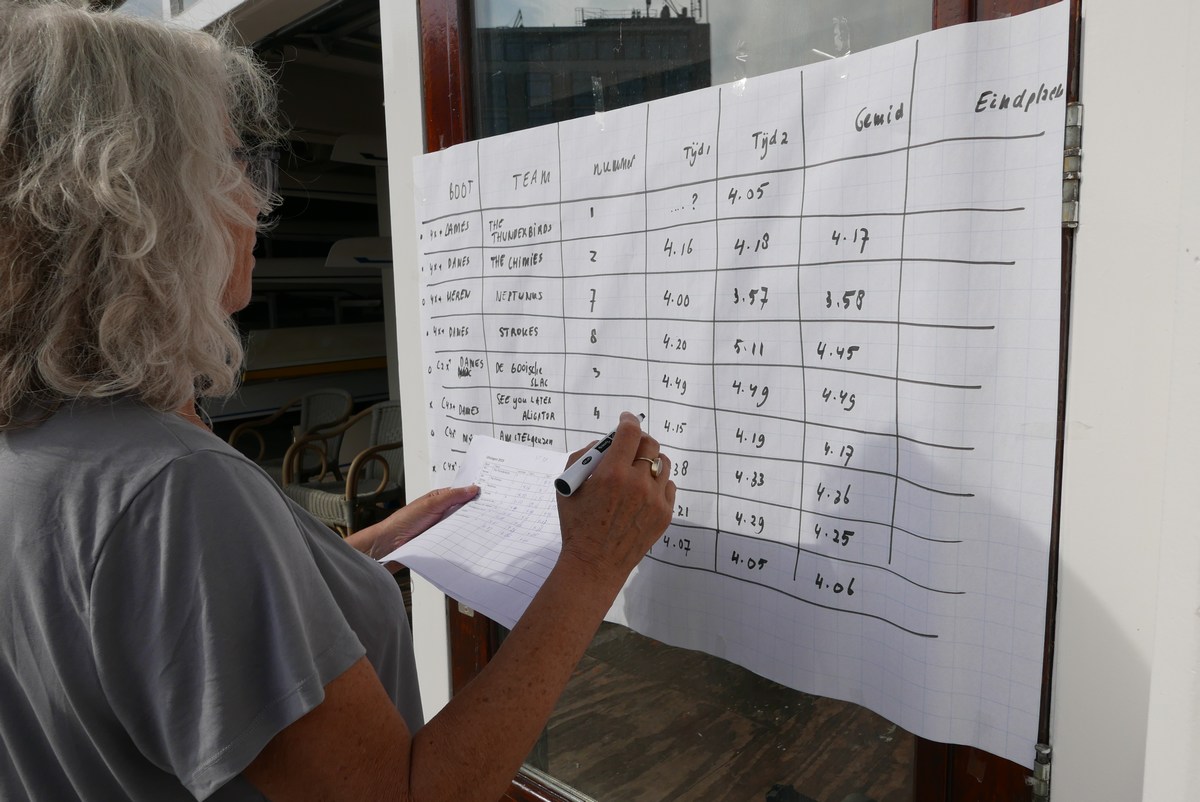 BOOT TEAM NUMMER Tijd1 Tijd2 Gemid Eindplaats
4x+ DAMES THE THUNDERBIRDS 1 ....? 4.05
4x+ DAMES THE CHIMIES 2 4.16 4.18 4.17
4x+ HEREN NEPTUNUS 7 4.00 3.57 3.58
4x+ DAMES STROKES 8 4.20 5.11 4.45
C2x+ DAMES DE GOOISCHE SLAG 3 4.49 4.49 4.49
C4x+ DAMES SEE YOU LATER ALIGATOR 4 4.15 4.19 4.17
C4* AMSTELGENZEN 38 4.33 4.36
C4x+ .21 4.29 4.25
4.07 4.05 4.06